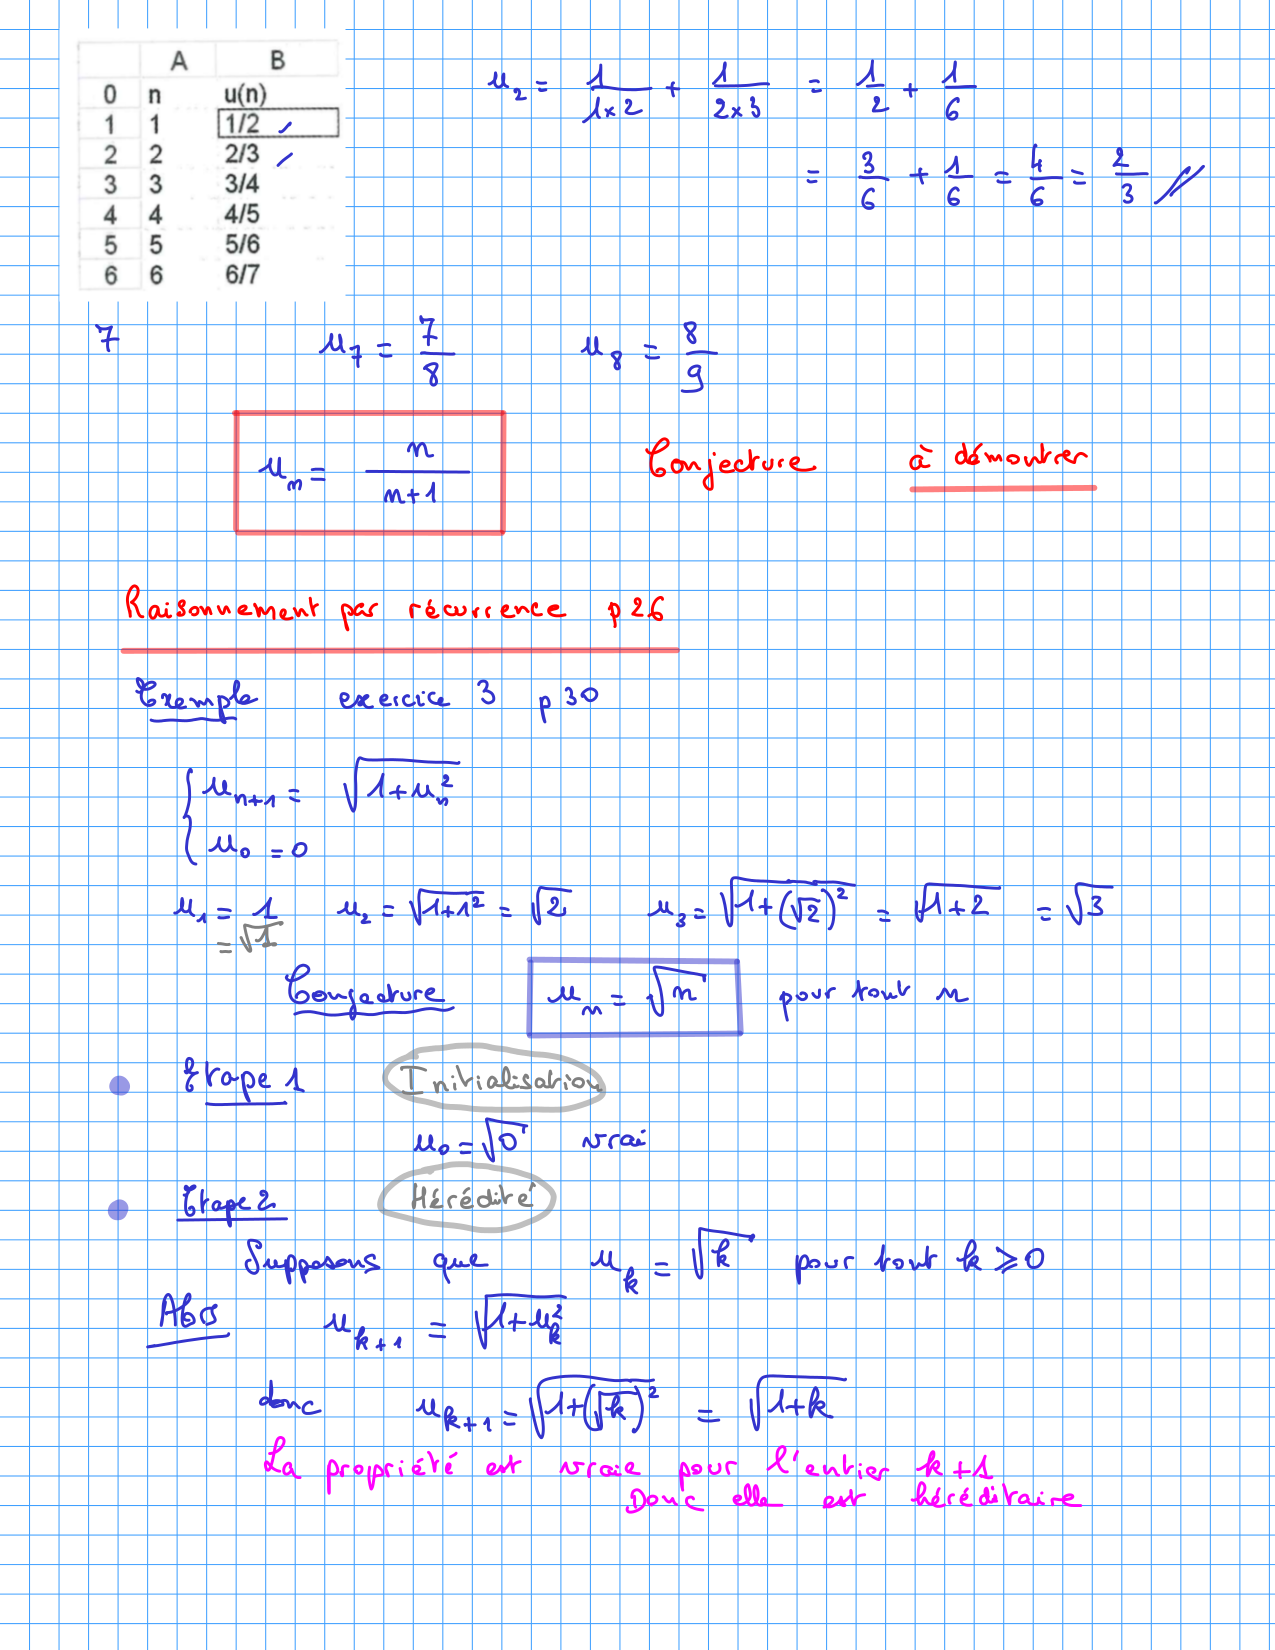 A B
0 n u(n)
1 1 1/2
2 2 2/3
3 3 3/4
4 4 4/5
5 5 5/6
6 6 6/7
u₂ = 1/(1×2) + 1/(2×3) = 1/2 + 1/6
= 3/6 + 1/6 = 4/6 = 2/3
7 u₇ = 7/8 u₈ = 8/9
uₙ = n/(n+1) Conjecture à démontrer
Raisonnement par récurrence p 26
Exemple exercice 3 p 30
{ uₙ₊₁ = √(1+uₙ²)
u₀ = 0
u₁ = 1 u₂ = √(1+1²) = √2 u₃ = √(1+(√2)²) = √(1+2) = √3
= √1
Conjecture uₙ = √n pour tout n
Etape 1 Initialisation
u₀ = √0 vrai
Etape 2 Hérédité
Supposons que uₖ = √k pour tout k ⩾ 0
Alos uₖ₊₁ = √(1+uₖ²)
donc uₖ₊₁ = √(1+(√k)²) = √(1+k)
La propriété est vraie pour l'entier k+1
Donc elle est héréditaire